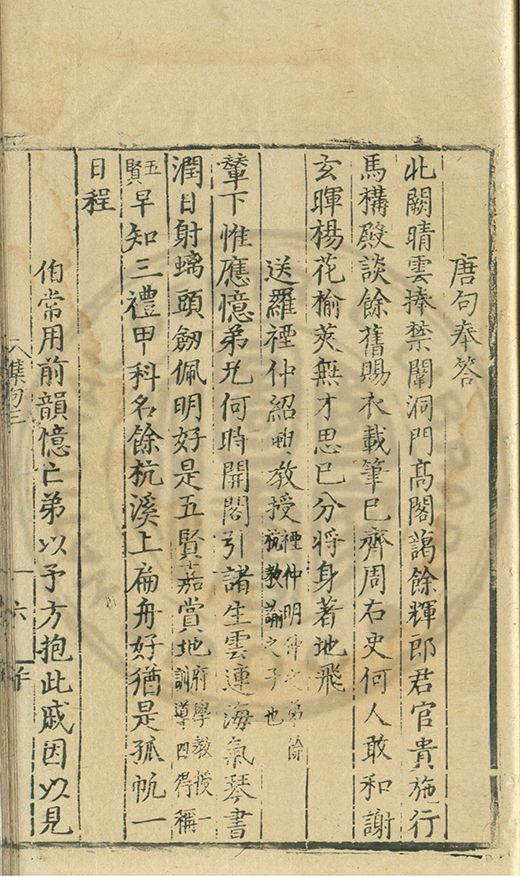 唐句奉答
北闕晴雲捧禁闈洞門高閣藹餘輝郎君官貴施行
馬構殿談餘舊賜衣載筆已齊周右史何人敢和謝
玄暉楊花榆莢無才思已分將身著地飛
送羅禋仲紹教授禋仲明仲之弟餘杭教諭之子也
輦下惟應憶弟兄何時開閣引諸生雲連海氣琴書
潤日射螭頭劒佩明好是五賢嘉賞地府學教授一訓導四得稱
五賢早知三禮甲科名餘杭溪上扁舟好猶是孤帆一
日程
伯常用前韻憶亡弟以予方抱此戚因以見
集句三
六